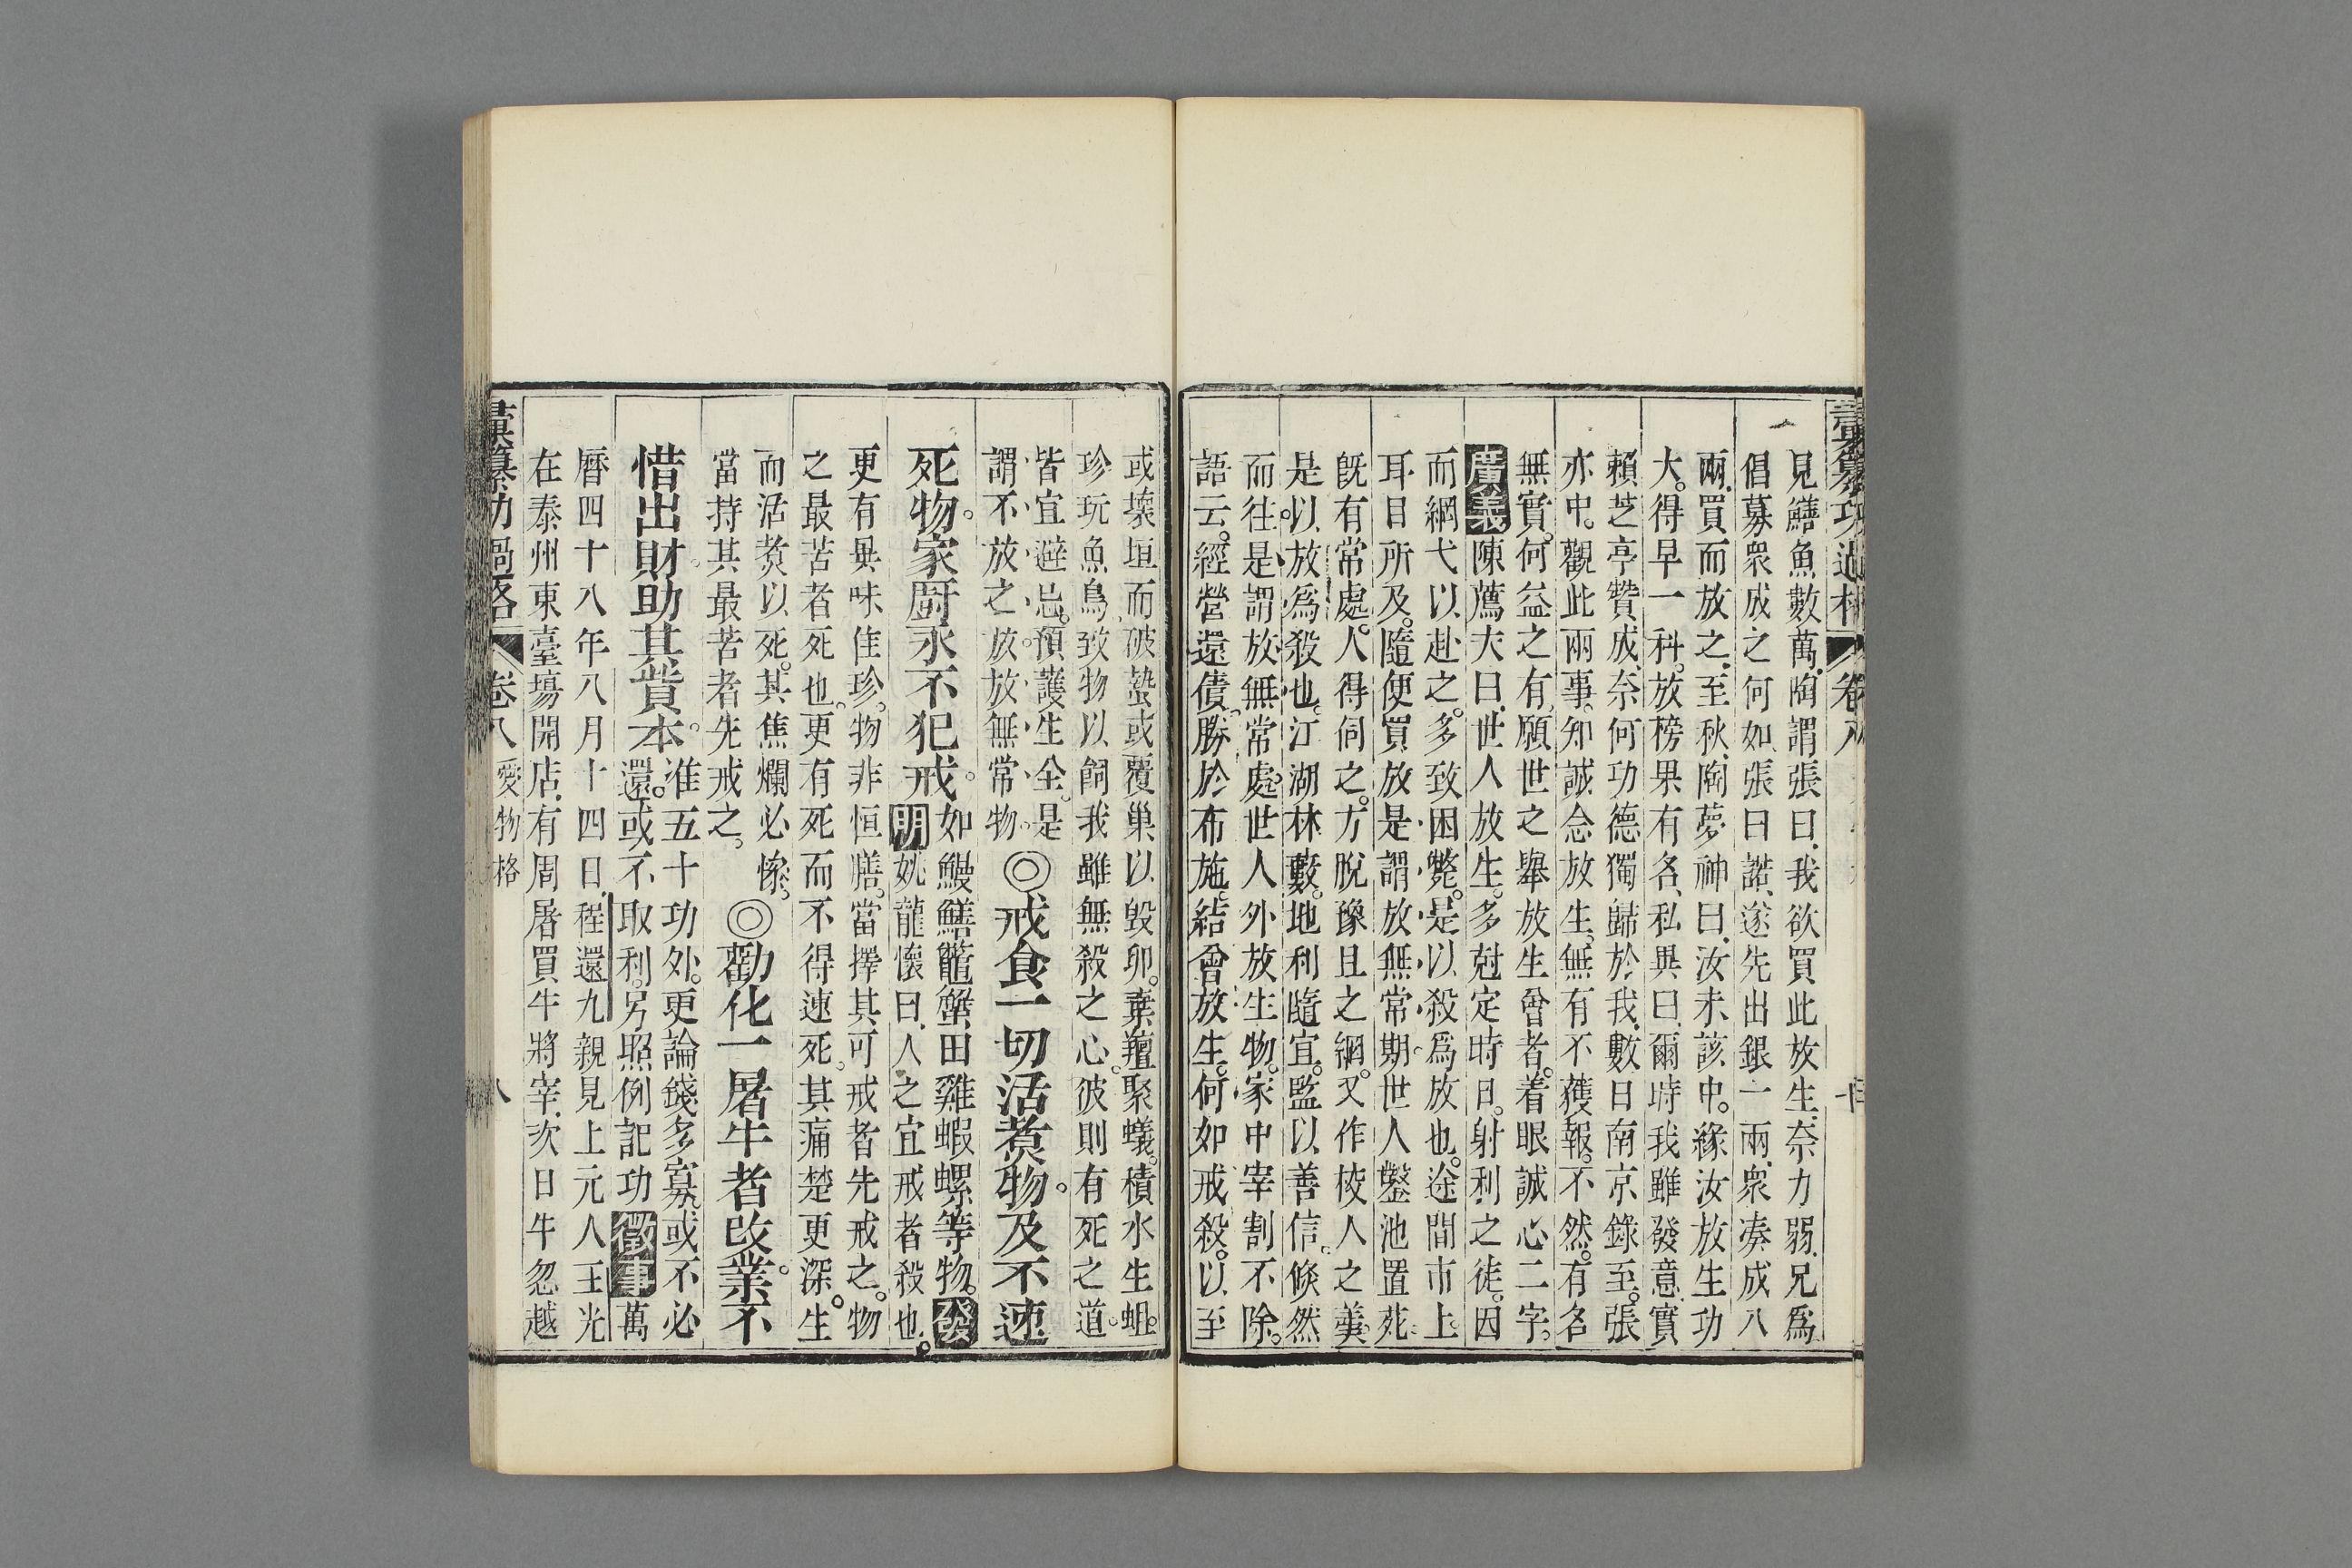 彙纂功過格 卷八
見鱔魚數萬。陶謂張曰、我欲買此放生、奈力弱、兄爲
倡募衆成之何如、張曰諾、遂先出銀一兩、衆凑成八
兩、買而放之、至秋、陶夢神曰、汝未該中。緣汝放生功
大。得早一科。放榜果有名、私異曰、爾時我雖發意、實
賴芝亭贊成、奈何功德獨歸於我、數日南京錄至。張
亦中。觀此兩事。知誠念放生、無有不獲報。不然。有名
無實。何益之有、願世之舉放生會者。着眼誠心二字。
廣義陳薦夫曰、世人放生。多尅定時日。射利之徒。因
而網弋以赴之。多致困斃。是以殺爲放也。途間市上。
耳目所及。隨便買放。是謂放無常期。世人鑿池置苑。
旣有常處。人得伺之。方脫豫且之網。又作校人之羹。
是以放爲殺也。江湖林藪。地利隨宜。監以善信。倏然
而往。是謂放無常處。世人外放生物。家中宰割不除。
語云。經營還債。勝於布施。結會放生。何如戒殺。以至
或壞垣而破蟄或覆巢以毀卵。棄羶聚蟻。積水生蛆。
珍玩魚鳥、致物以飼我、雖無殺之心。彼則有死之道。
皆宜避忌。預護生全。是
謂不放之放。放無常物。
◎戒食一切活煑物。及不速
死物。家厨永不犯戒。
如鰻鱔鼈蟹、田雞蝦螺等物。發
明姚龍懷曰、人之宜戒者殺也。
更有異味佳珍。物非恒膳。當擇其可戒者先戒之。物
之最苦者死也。更有死而不得速死。其痛楚更深。生
而活煑以死。其焦爛必慘。
當持其最苦者先戒之。
◎勸化一屠牛者改業。不
惜出財助其貲本。
准五十功外。更論錢多寡。或不必
還。或不取利。另照例記功徵事萬
曆四十八年八月十四日、程還九親見上元人王光
在泰州東臺塲開店、有周屠買牛將宰、次日牛忽越
彙纂功過格 卷八 愛物格 八